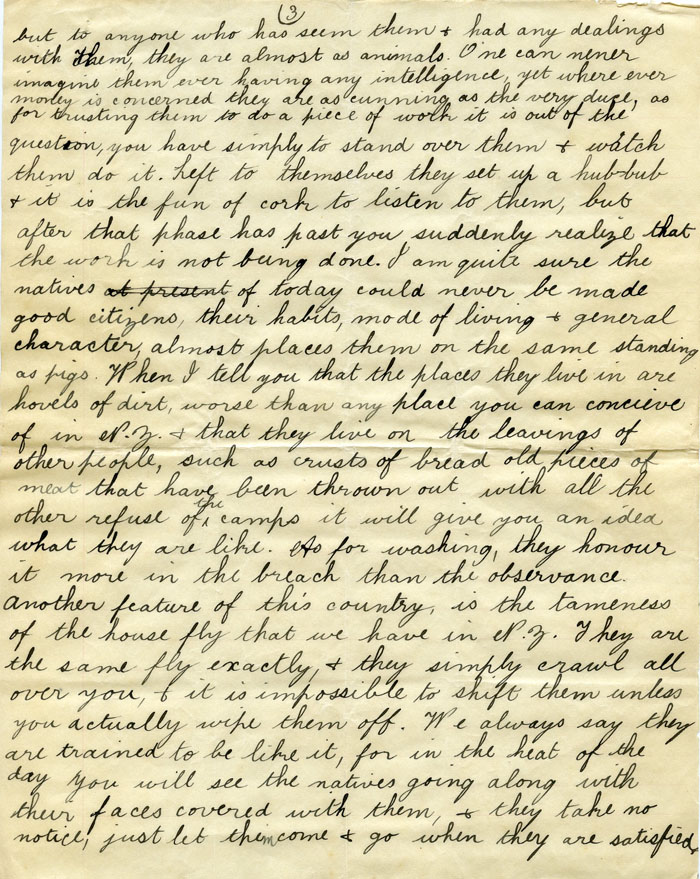 3
but to anyone who has seem them & had any dealings
with them, they are almost as animals. One can never
imagine them ever having any intelligence, yet where ever
money is concerned they are as cunning as the very duce, as
for trusting them to do a piece of work it is out of the
question, you have simply to stand over them & watch
them do it. Left to themselves they set up a hub-bub
& it is the fun of cork to listen to them, but
after that phase has past you suddenly realize that
the work is not being done. I am quite sure the
natives at present of today could never be made
good citizens, their habits, mode of living & general
character, almost places them on the same standing
as pigs. When I tell you that the places they live in are
hovels of dirt, worse than any place you can concieve
of in N.Z. & that they live on the leavings of
other people, such as crusts of bread old pieces of
meat that have been thrown out with all the
other refuse of the camps it will give you an idea
what they are like. As for washing, they honour
it more in the breach than the observance.
Another feature of this country, is the tameness
of the house fly that we have in N.Z. They are
the same fly exactly, & they simply crawl all
over you, & it is impossible to shift them unless
you actually wipe them off. We always say they
are trained to be like it, for in the heat of the
day you will see the natives going along with
their faces covered with them, & they take no
notice, just let them come & go when they are satisfied,